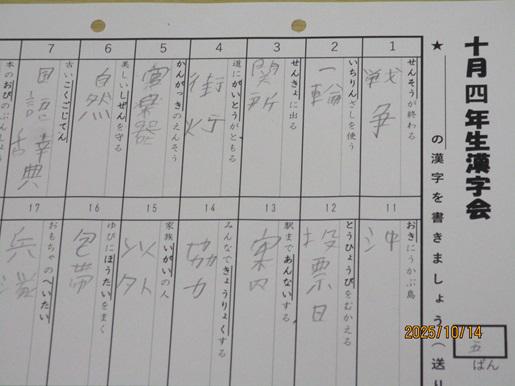 十月四年生漢字会
★
の漢字を書きましょう(送り
五
ばん
1
せんそうが終わる
戦争
2
いちりんざしを使う
一輪
3
に出る
関所
4
道にがいとうがともる
街灯
5
かんがっきのえんそう
楽器
6
美しいしぜんを守る
自然
7
古いこくごじてん
国語 典
本のおびのぶんしょう
11
おきにうかぶ島
沖
12
とうひょうびをむかえる
投票日
13
駅まであんないする
案内
14
みんなできょうりょくする
協力
15
家族いがいの人
以外
16
ゆびにほうたいをまく
包帯
17
おもちゃのへいたい
兵
2025/10/14